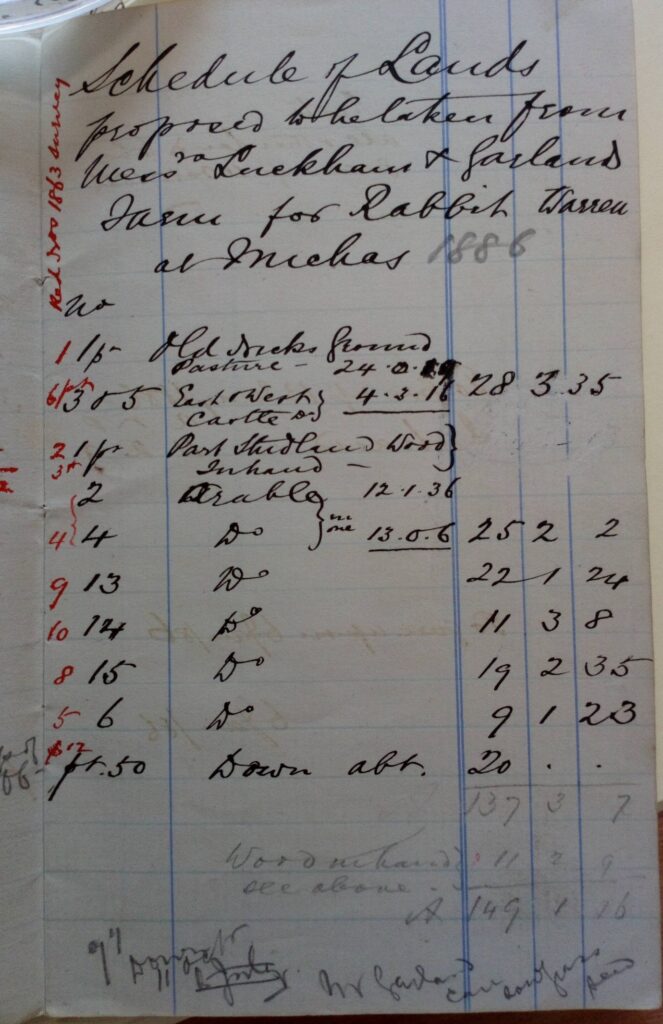 Red Nos 1863 Survey
Schedule of Lands
proposed to be taken from
Messrs Luckham & Garland
Farm for Rabbit Warren
at Michas 1886
No
1 1pt Old Nicks Ground
Pasture – 24.0.19
6pt 3 & 5 East & West Castle Do } 4.3.16 28 3 35
2 1pt Part Studland Wood }
3pt Inhand –
2 Arable } 12.1.36
4 4 Do } in one 13.0.6 25 2 2
9 13 Do 22 1 24
10 14 Do 11 3 8
8 15 Do 19 2 35
5 6 Do 9 1 23
pt 12 pt. 50 Down abt. 20 . .
137 3 7
Wood in hand 11 2 9
see above
A 149 1 16
Mr Garland
can